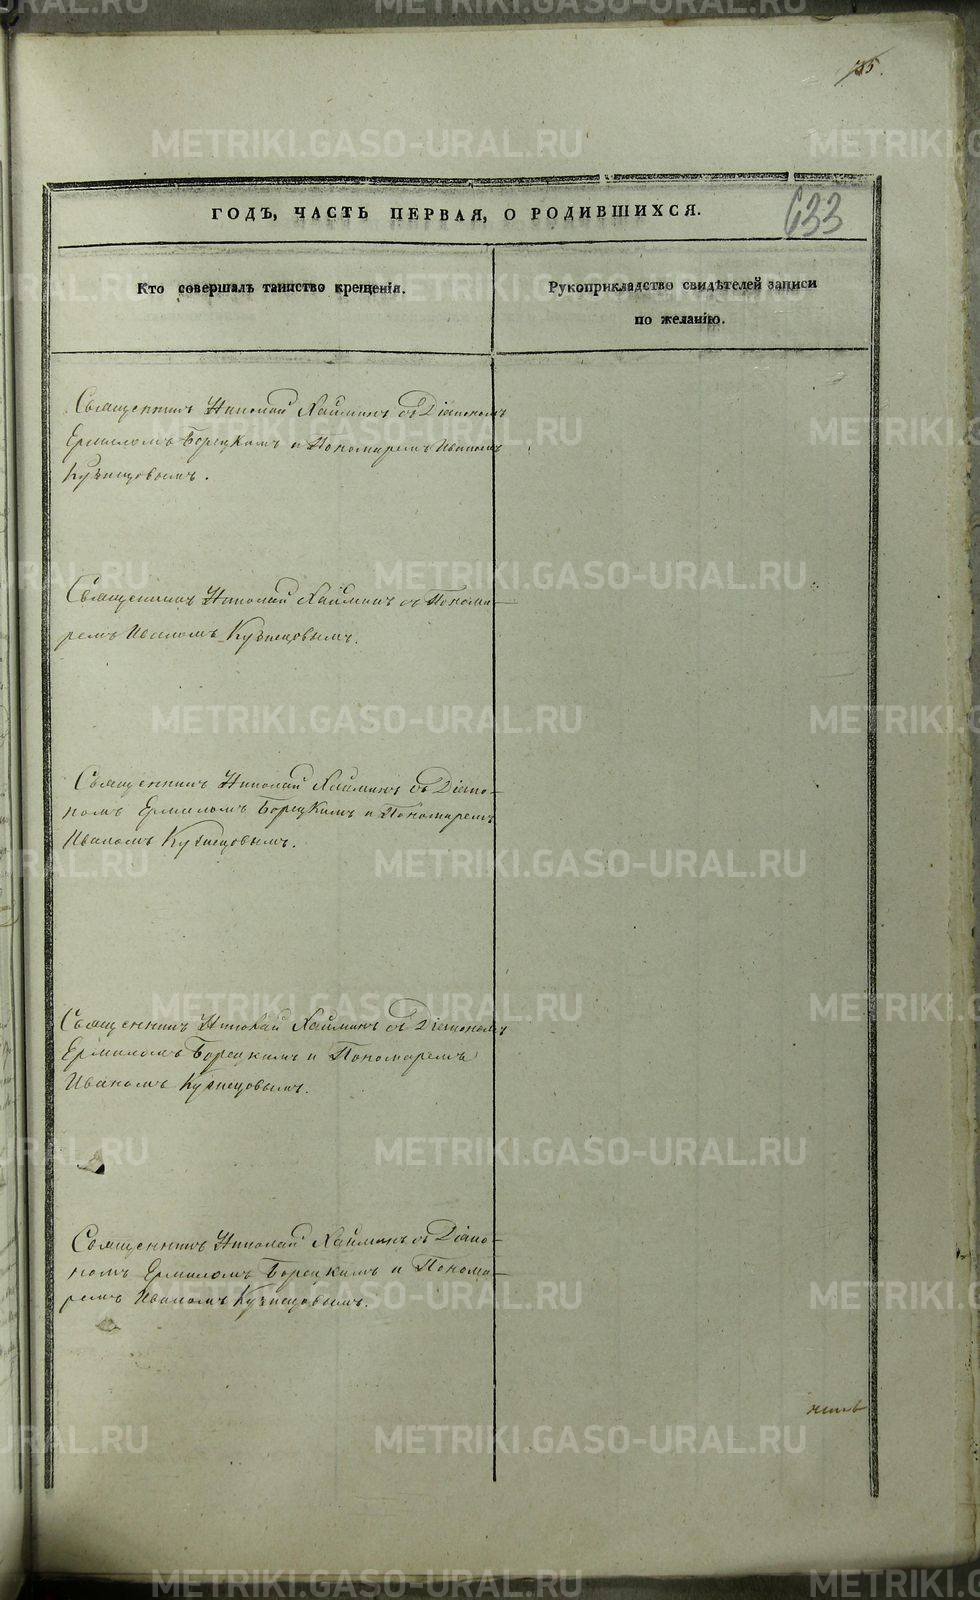 135.
633
ГОДЪ, ЧАСТЬ ПЕРВАЯ, О РОДИВШИХСЯ.
Кто совершалъ таинство крещенія.
Рукоприкладство свидѣтелей записи
по желанію.
Священникъ Николай Хайминъ съ Діакономъ
Ермиломъ Борецкимъ и Пономаремъ Иваномъ
Кузнецовымъ.
Священникъ Николай Хайминъ съ Понома-
ремъ Иваномъ Кузнецовымъ.
Священникъ Николай Хайминъ съ Діако-
номъ Ермиломъ Борецкимъ и Пономаремъ
Иваномъ Кузнецовымъ.
Священникъ Николай Хайминъ съ Діакономъ
Ермиломъ Борецкимъ и Пономаремъ
Иваномъ Кузнецовымъ.
Священникъ Николай Хайминъ съ Діако-
номъ Ермиломъ Борецкимъ и Понома-
ремъ Иваномъ Кузнецовымъ.
METRIKI.GASO-URAL.RU